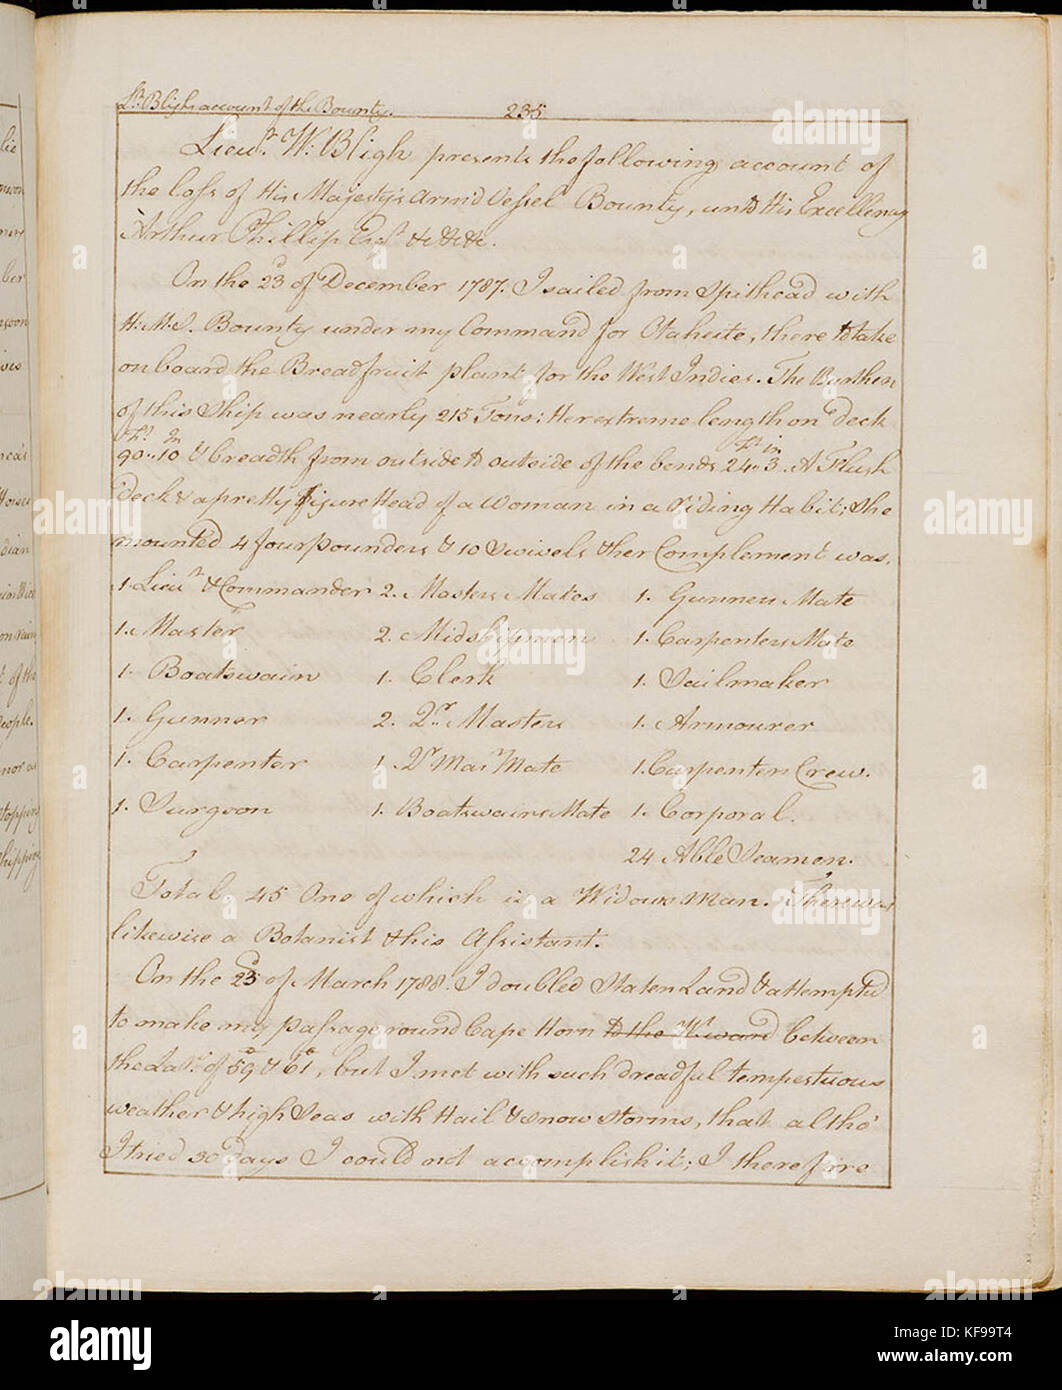 Lt. Blighs account of the Bounty. 235
Lieut. W: Bligh presents the following account of
the loss of His Majesty's Armd Vessel Bounty, unto His Excellency
Arthur Phillip Esqr. &c &c &c.
On the 23d of December 1787. I sailed from Spithead with
H.M.S. Bounty under my Command for Otaheite, there to take
on board the Breadfruit plant for the West Indies. The Burthen
of this Ship was nearly 215 Tons: Her extreme length on deck
90 Ft. 10 In & breadth from outside to outside of the bends 24 Ft 3 in. A Flush
deck & a pretty figure Head of a Woman in a riding Habit; She
mounted 4 four pounders & 10 Swivels & her Complement was.
1. Lieut. & Commander 2. Masters Mates 1. Gunners Mate
1. Master 2. Midshipmen 1. Carpenters Mate
1. Boatswain 1. Clerk 1. Sailmaker
1. Gunner 2. Qr. Masters 1. Armourer
1. Carpenter 1. Qr Masr Mate 1. Carpenters Crew.
1. Surgeon 1. Boatswains Mate 1. Corporal.
24 Able Seamen.
Total. 45 One of which is a Widows Man. There was
likewise a Botanist & his Assistant.
On the 23d of March 1788. I doubled Staten Land & attempted
to make my passage round Cape Horn to the Wtward between
the Latr. of 59° & 61°, but I met with such dreadful tempestuous
weather & high Seas with Hail & snow storms, that altho'
I tried 30 days I could not accomplish it; I therefore
alamy
KF99T4
www.alamy.com